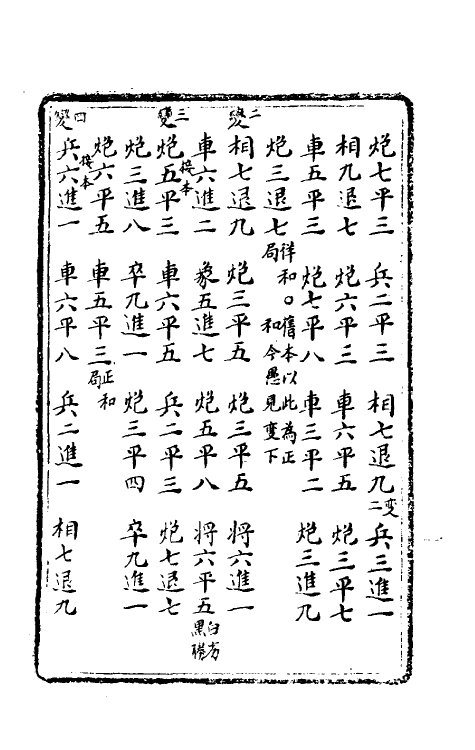 炮七平三 兵二平三 相七退九二变 兵三進一
相九退七 炮六平三 車六平五 炮三平七
車五平三 炮七平八 車三平二 炮三進九
炮三退七 和局。舊本以此為正和今愚見变下
二變 相七退九 炮三平五 炮三平五 将六進一
車六進二 象五進七 炮五平八 将六平五
三變 接本 炮五平三 車六平五 兵二平三 炮七退七
炮三進八 卒九進一 炮三平四 卒九進一
炮六平五 車五平三 正和局
四變 接本 兵六進一 車六平八 兵二進一 相七退九